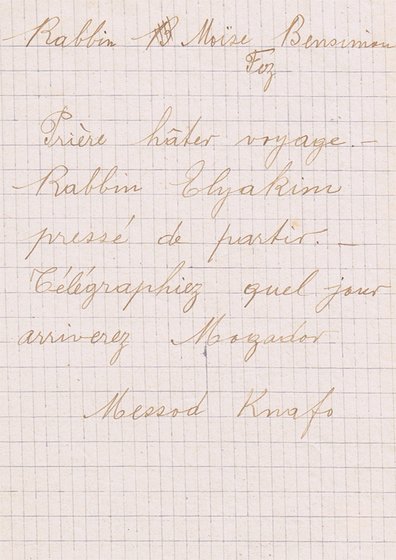 Rabbin Moïse Bensimon
Fez
Prière hâter voyage. —
Rabbin Elyakim
pressé de partir. —
Télégraphiez quel jour
arriverez Mogador
Messod Knafo